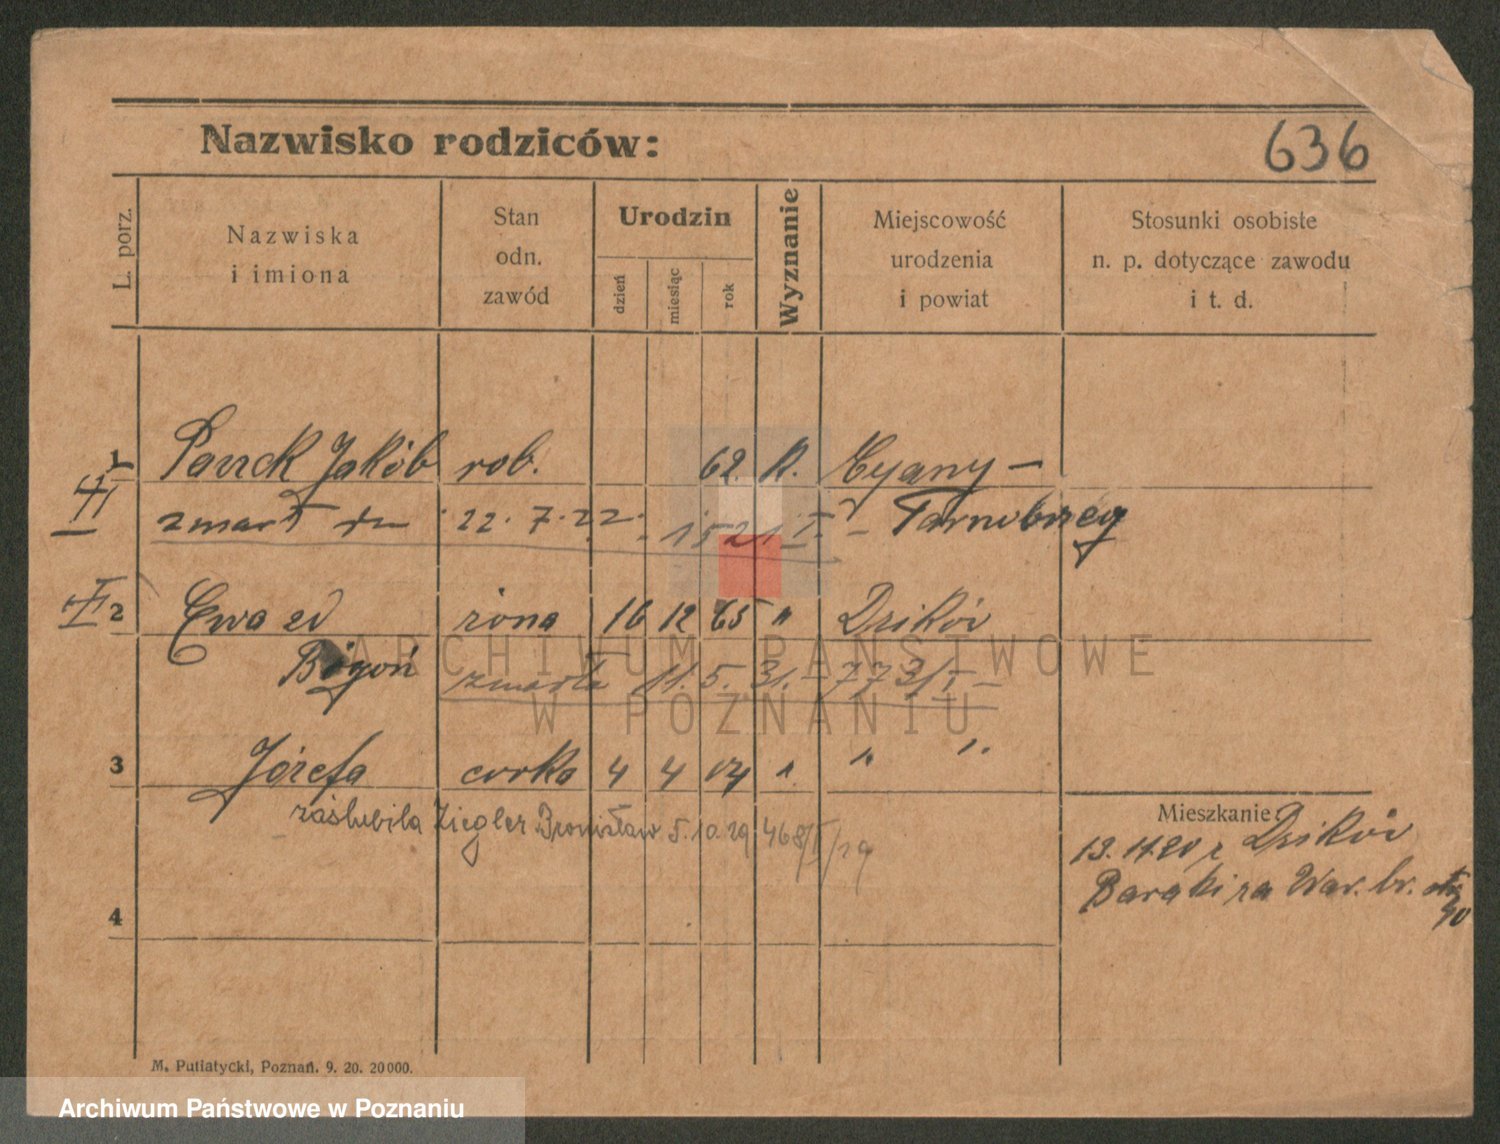 Nazwisko rodziców:
636
L. porz.
Nazwiska
i imiona
Stan
odn.
zawód
Urodzin
dzień
miesiąc
rok
Wyznanie
Miejscowość
urodzenia
i powiat
Stosunki osobiste
n. p. dotyczące zawodu
i t. d.
1 Jakób rob. 62. R. Cygany –
zmarł dn 22. 7. 22. 1521 I. – Tarnobrzeg
2 Ewa zd żona 16 12 65 " Dzików
Bogoń zmarła 11. 5. 31. 773/I –
3 Józefa córka 4 4 04 " " "
zaślubiła Ziegler Bronisław 5.10.29 468/I/29
Mieszkanie:
13. 11. 20 z Dzików
Baraki za War. br.
4
M. Putiatycki, Poznań. 9. 20. 20000.
ARCHIWUM PAŃSTWOWE
W POZNANIU
Archiwum Państwowe w Poznaniu